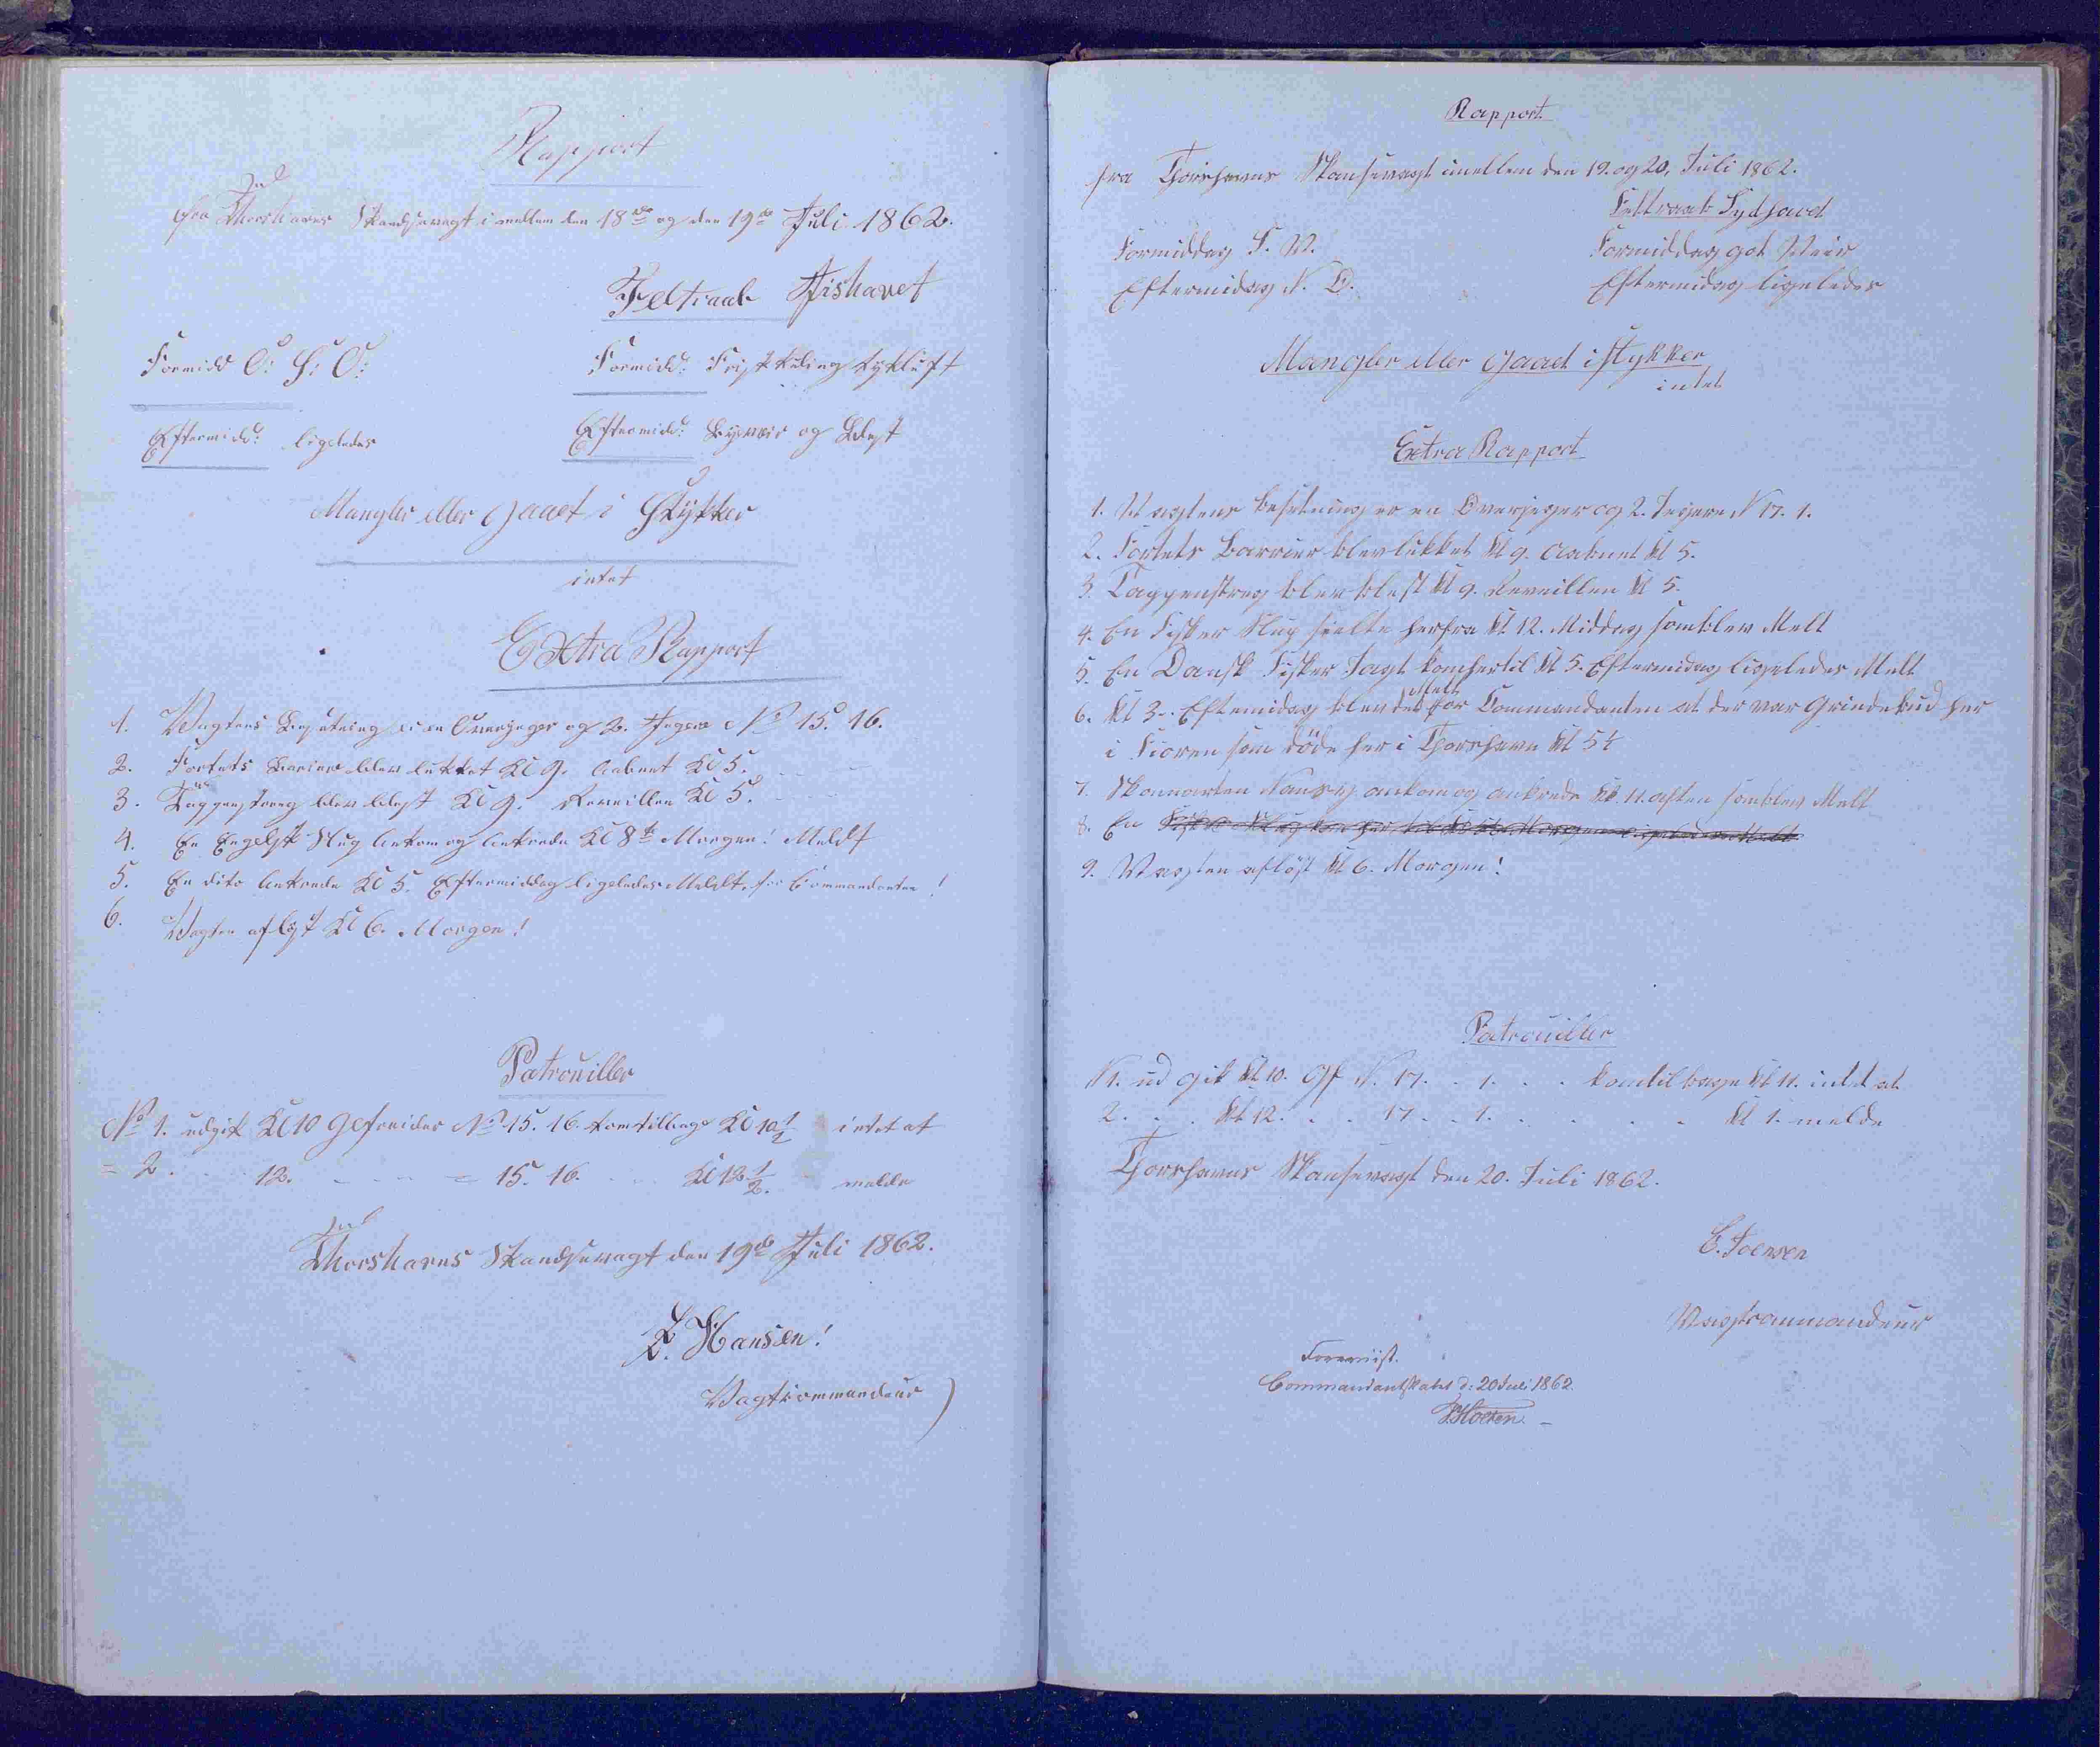 Rapport
fra Thorshavns Skandsevagt imellem den 18de og den 19de Juli 1862.
Feltraab Ishavet
Formidd: O: S: O:
Formidd: Frisk Kuling tykluft
Eftermidd: ligeledes
Eftermidd: og Blæst
Mangler eller Gaaet i Stykker
intet
Extra Rapport
1. Vagtens Besætning er en Overjæger og 2. Jægere No 15. 16.
2. Fortets Barriere blev lukket Kl 9. Aabnet Kl 5.
3. Tappenstreg blev blæst Kl 9. Reveillen Kl 5.
4. En Engelsk Slup Ankom og Ankrede Kl 8 Morgen! Meldt
5. En dito Ankrede Kl 5. Eftermiddag ligeledes Meldt, for Commandanten!
6. Vagten afløst Kl 6. Morgen!
Patrouiller
No 1. udgik Kl 10 Gefreider No 15. 16. kom tilbage Kl 10 1/2 intet at
= 2. 12. = 15. 16. Kl 12 1/2. melde
Thorshavns Skandsevagt den 19de Juli 1862.
Hansen!
Vagtkommandeur
Rapport
fra Thorshavns Skansevagt imellem den 19. og 20. Juli 1862.
Feltraab Sydhavet
Formiddag S. V.
Formiddag got Veir
Eftermidag N. O.
Eftermidag ligeledes
Mangler eller Gaaet i stykker
intet
Extra Rapport
1. Vagtens besetning er en Overjeger og 2. Jegere N 17. 1.
2. Fortets Barrier blev lukket Kl 9. Aabnet Kl 5.
3. Tappenstreg blev blest Kl 9. Reveillen Kl 5.
4. En Fisker Slup seilte herfra Kl 12. Middag som blev Melt
5. En Dansk Fisker Jagt kom hertil Kl 5. Eftermidag ligeledes Melt
6. Kl 3 Eftermidag blev det Melt for Commandanten at der var Grindebud her
i Fioren som döde her i Thorshavn Kl 5½
7. Skonnarten ankom og ankrede Kl. 11. aften som blev Melt
8. En Fisker Slup kom her til Kl Morgen ligeledes Melt
9. Vagten aflöst Kl 6. Morgen!
Patrouiller
N 1. ud gik Kl 10. Gf N. 17. 1. kom tilbage Kl 11. intet at
2. Kl 12. 17 1. Kl 1. melde
Thorshavns Skansevagt den 20. Juli 1862.
E. Joensen
Vagtcommandeur
Foreviist.
Commandantskabet d: 20 Juli 1862.
Holten